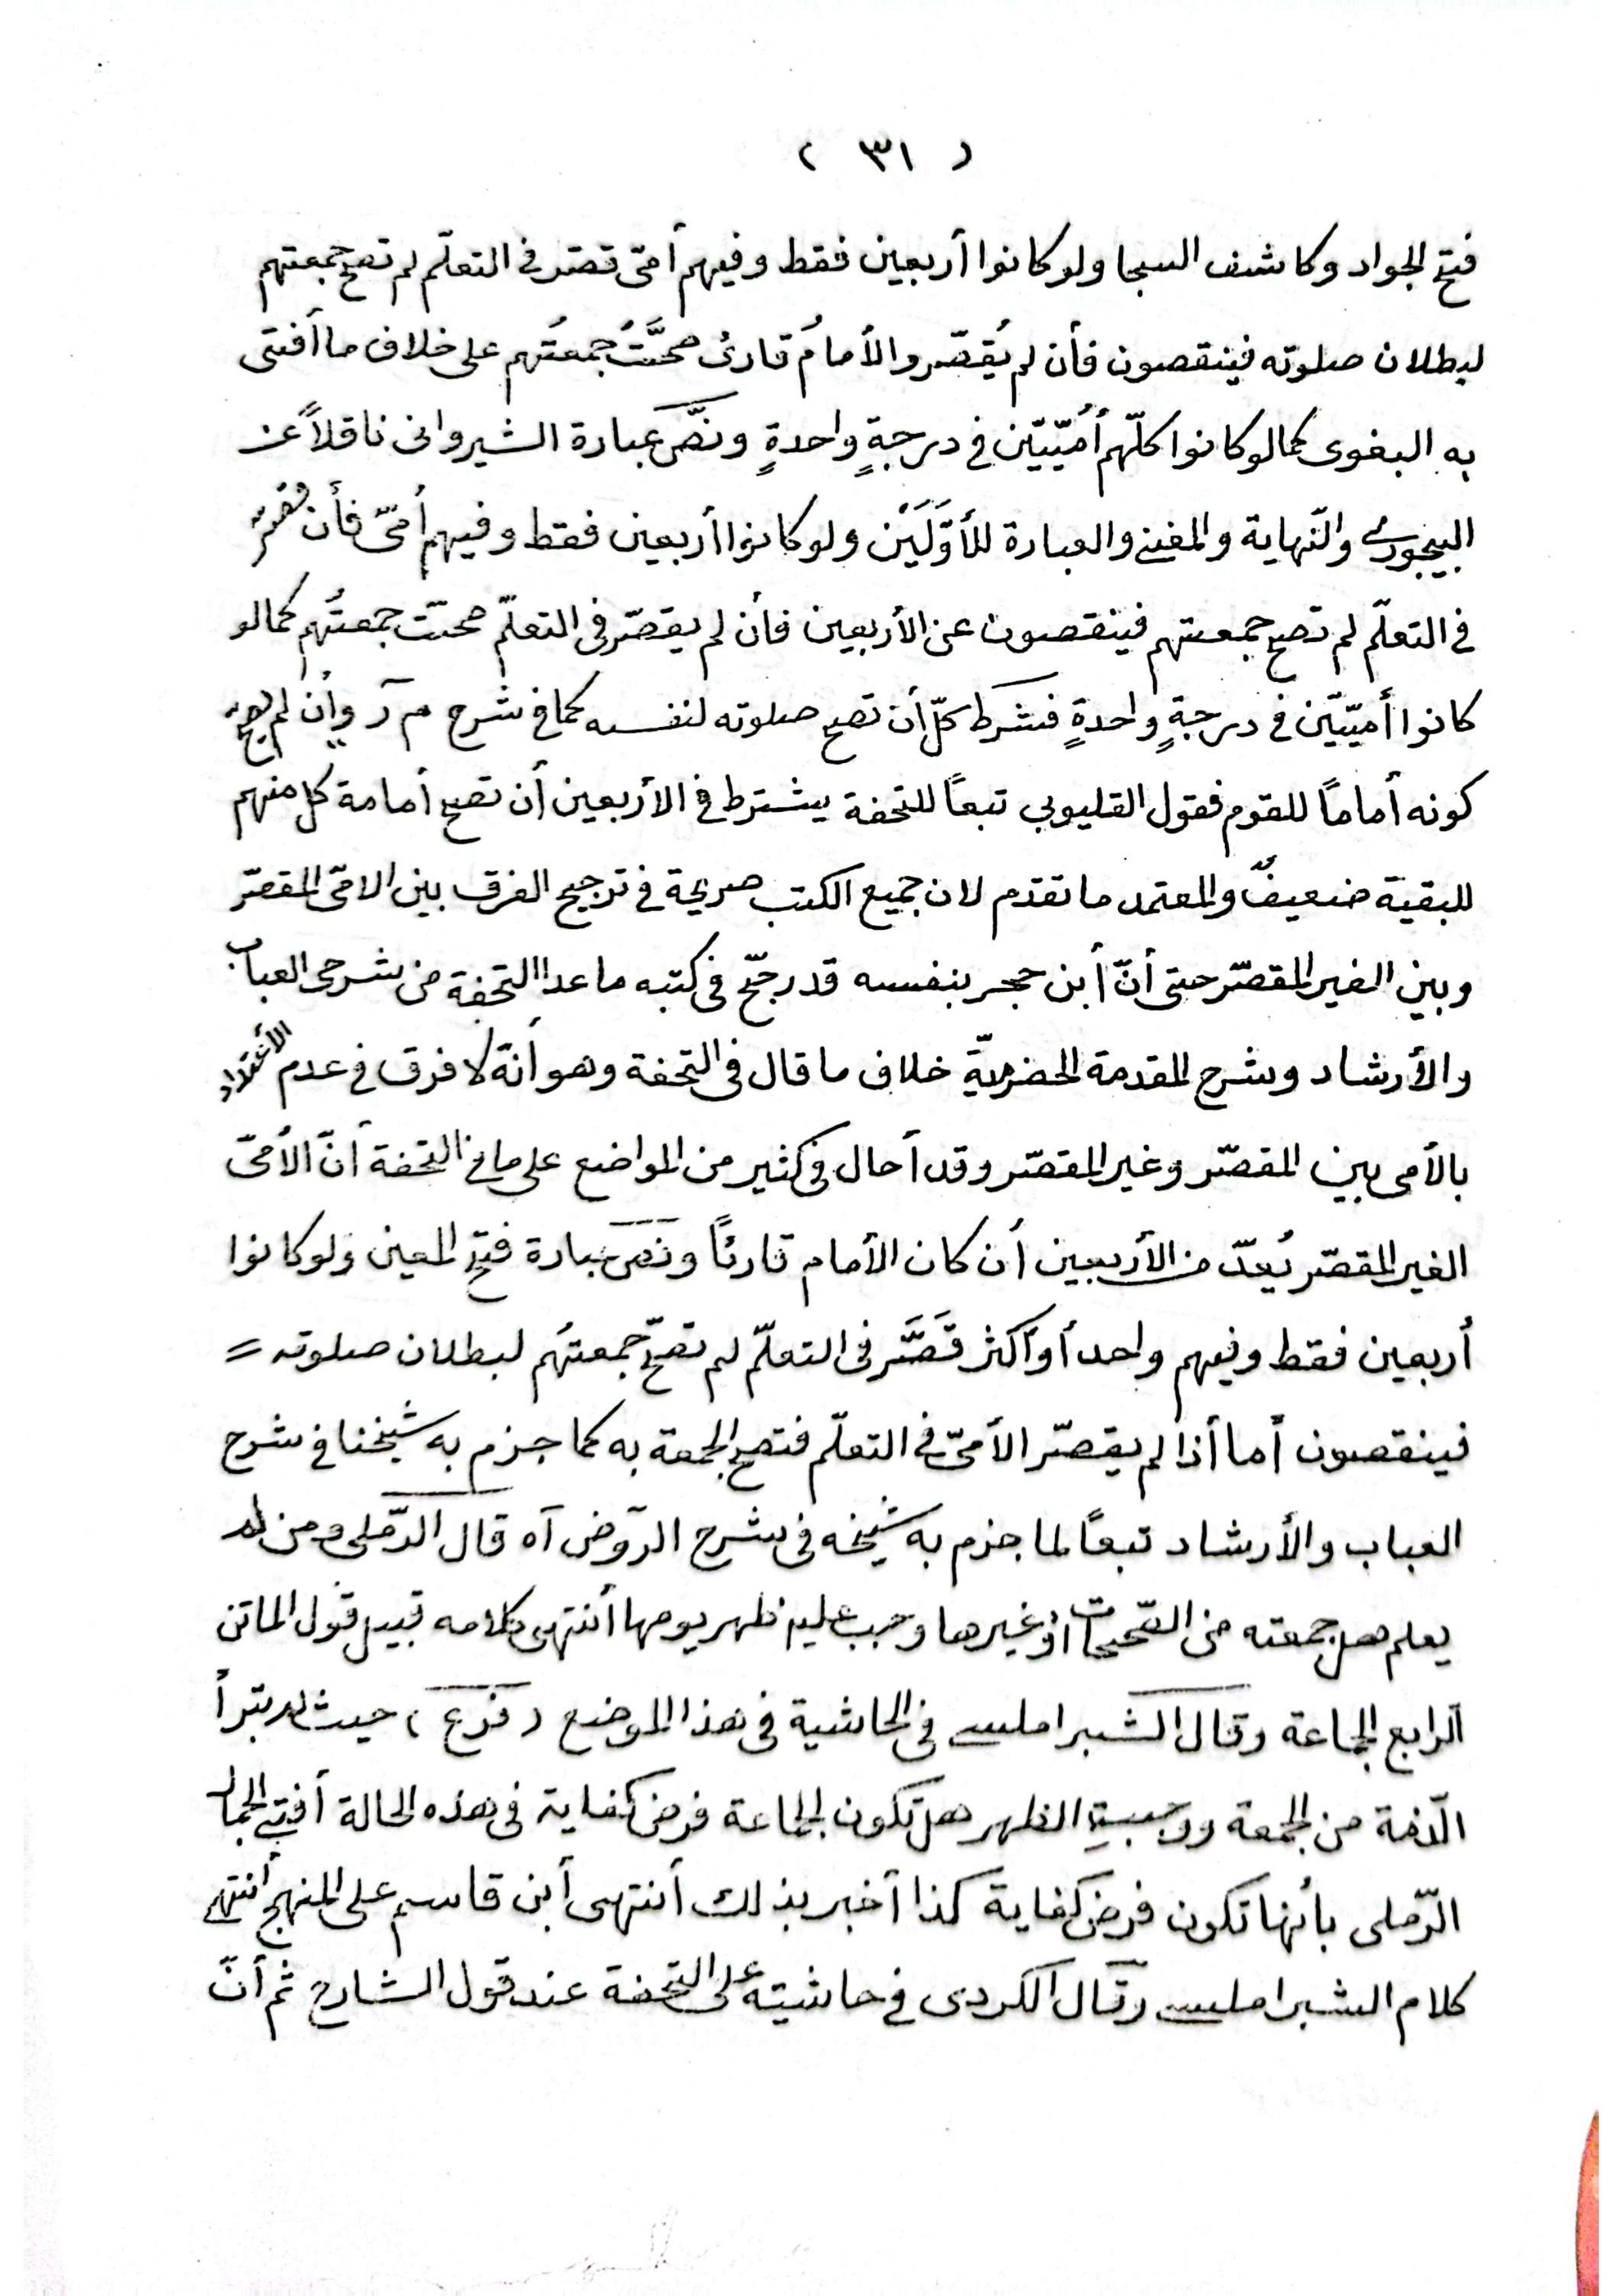 ( ٣١ )
فتح الجواد وكاشف السجا ولو كانوا أربعين فقط وفيهم أمّى قصّر فى التعلّم لم تصحّ جمعتهم
لبطلان صلوته فينقصون فأن لم يُقصّر والأمامُ قارئ صحَّتْ جمعتُهم على خلاف ما أفتى
به البغوى كما لو كانوا كلّهم أُمّيّيّن فى درجةٍ واحدةٍ ونصّ عبارة الشيروانى ناقلاً عن
البيجورى والنّهاية والمغنى والعبارة للأوّلَيْن ولو كانوا أربعين فقط وفيهم أُمىّ فأن قصّر
فى التعلّم لم تصح جمعتهم فينقصون عن الأربعين فأن لم يقصّر فى التعلّم صحّت جمعتُهم كما لو
كانوا أميّيّن فى درجةٍ واحدةٍ فشرط كلّ أن تصح صلوته لنفسه كما فى شرح م ر وأن لم يصح
كونه أماماً للقوم فقول القليوبى تبعاً للتحفة يشترط فى الأربعين أن تصح أمامة كل منهم
للبقية ضعيفٌ والمعتمد ما تقدم لان جميع الكتب صريحة فى ترجيح الفرق بين الامّى المقصّر
وبين الغير المقصّر حتى أنّ أبن حجر بنفسه قد رجّح فى كتبه ما عدا التحفة من شرحى العباب
والأرشاد وشرح المقدمة الحضرميّة خلاف ما قال فى التحفة وهو أنّه لا فرق فى عدم الأعتداد
بالأمى بين المقصّر وغير المقصّر وقد أحال فى كثير من المواضع على ما فى التحفة أنّ الأمّىّ
الغير المقصّر يُعدّ من الأربعين أن كان الأمام قارئاً ونصّ عبارة فتح المعين ولو كانوا
أربعين فقط وفيهم واحد أو أكثر قَصَّر فى التعلّم لم تصحّ جمعتُهم لبطلان صلوته =
فينقصون أما أذا لم يقصّر الأمىّ فى التعلّم فتصح الجمعة به كما جزم به شيخنا فى شرح
العباب والأرشاد تبعاً لما جزم به شيخه فى شرح الرّوض آه قال الرّملى ومن لم
يعلم هل جمعته من الصّحيحات أو غيرها وجب عليه ظهر يومها أنتهى كلامه قبيل قول الماتن
الرابع الجماعة وقال الشبراملسى فى الحاشية فى هذا الموضع ( فرع ) حيث لم تبرأ
الذّمة من الجمعة ووجبت الظهر هل تكون الجماعة فرض كفاية فى هذه الحالة أفتى الجمال
الرّملى بأنها تكون فرض كفاية كذا أخبر بذلك أنتهى أبن قاسم على المنهج أنتهى
كلام الشبراملسى وقال الكردى فى حاشيته على التحفة عند قول الشارح ثم أنّ